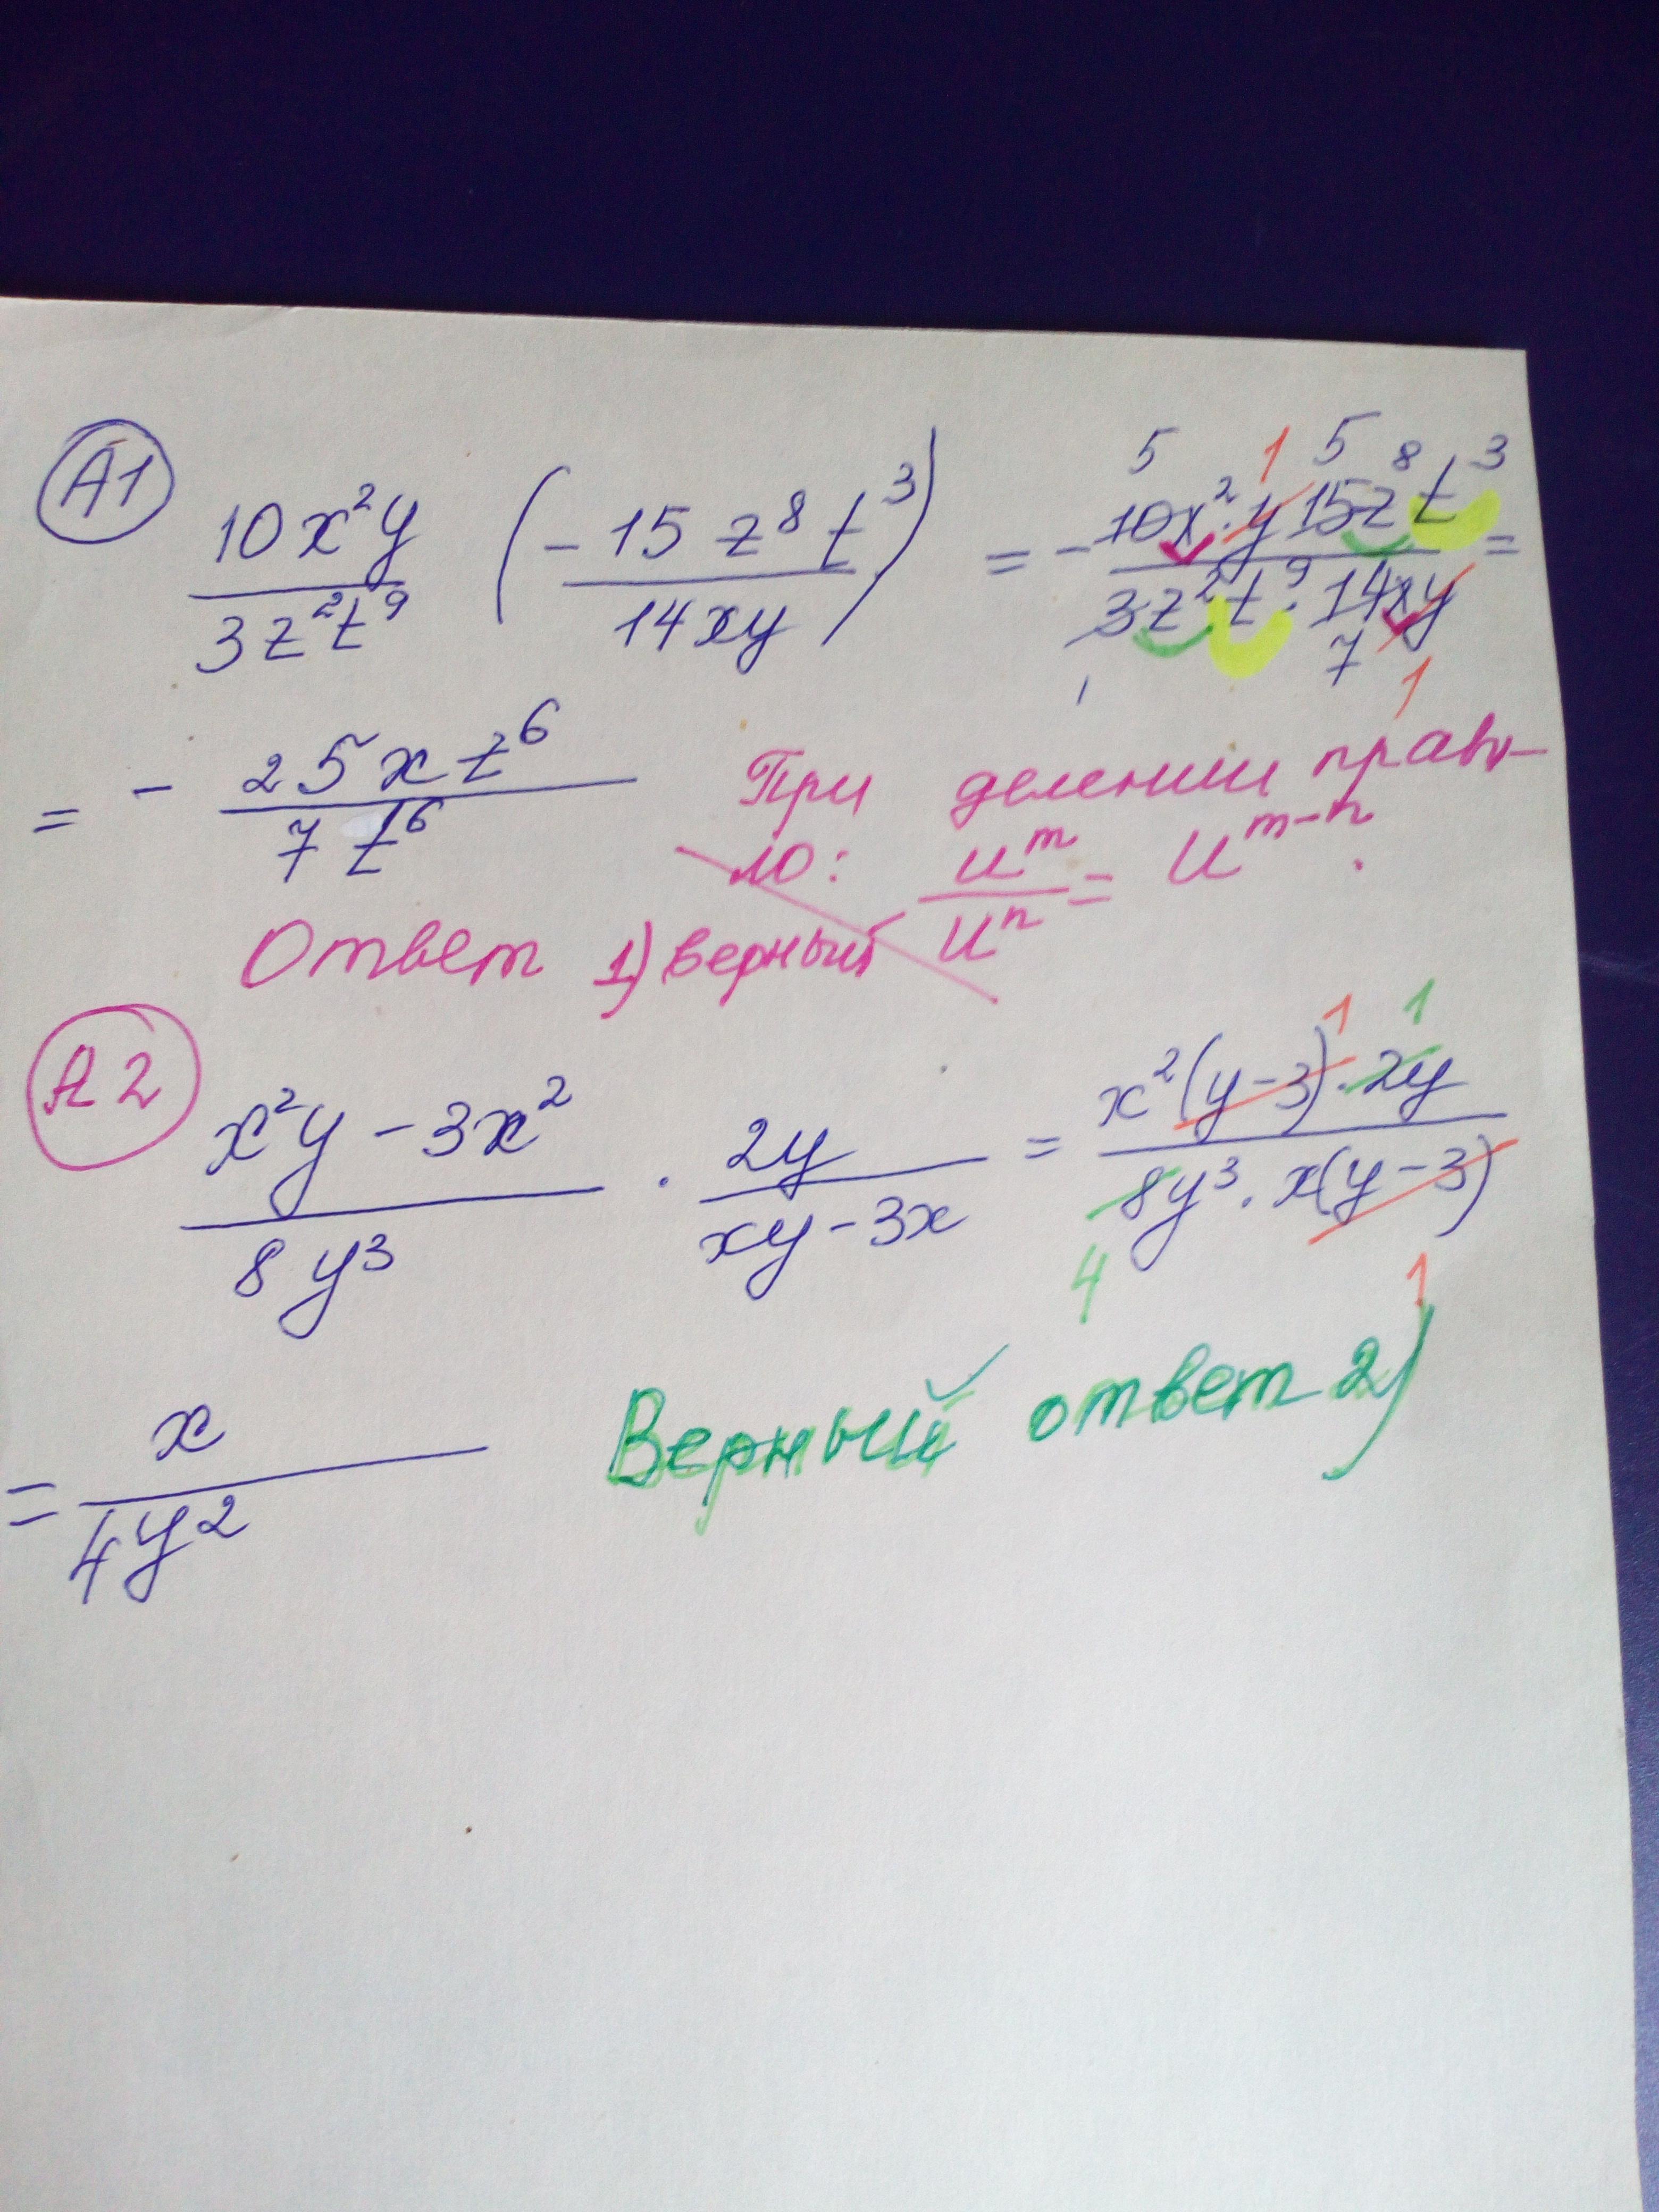 А1
10x²y / 3z²t⁹ (− 15z⁸t³ / 14xy) = − 10x²·y 15z⁸t³ / 3z²t⁹·14xy =
5 1 5
1 7 1
= − 25xz⁶ / 7t⁶ При делении прави-
ло: u^m / u^n = u^(m-n).
Ответ 1) верный
А2
x²y − 3x² / 8y³ · 2y / xy − 3x = x²(y − 3)·2y / 8y³·x(y − 3)
1 1
4 1
= x / 4y² Верный ответ 2)